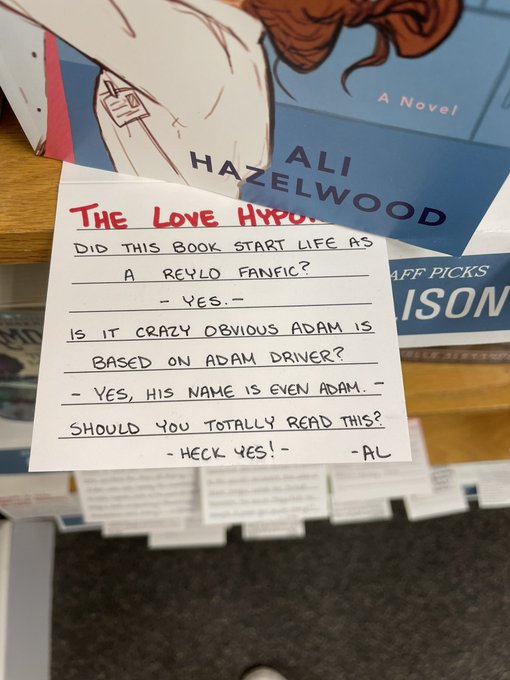 A Novel
ALI
HAZELWOOD
THE LOVE
DID THIS BOOK START LIFE AS
A REYLO FANFIC?
- YES. -
IS IT CRAZY OBVIOUS ADAM IS
BASED ON ADAM DRIVER?
- YES, HIS NAME IS EVEN ADAM. -
SHOULD YOU TOTALLY READ THIS?
- HECK YES! - -AL
AFF PICKS
LISON